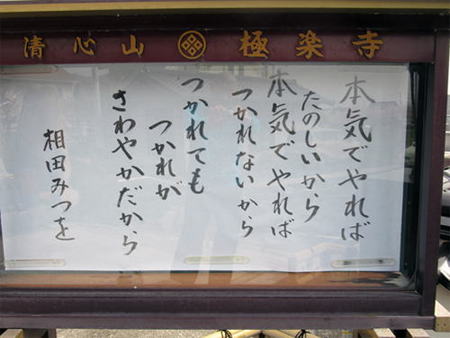 清心山 極楽寺
本気でやれば
たのしいから
本気でやれば
つかれないから
つかれても
つかれが
さわやかだから
相田みつを